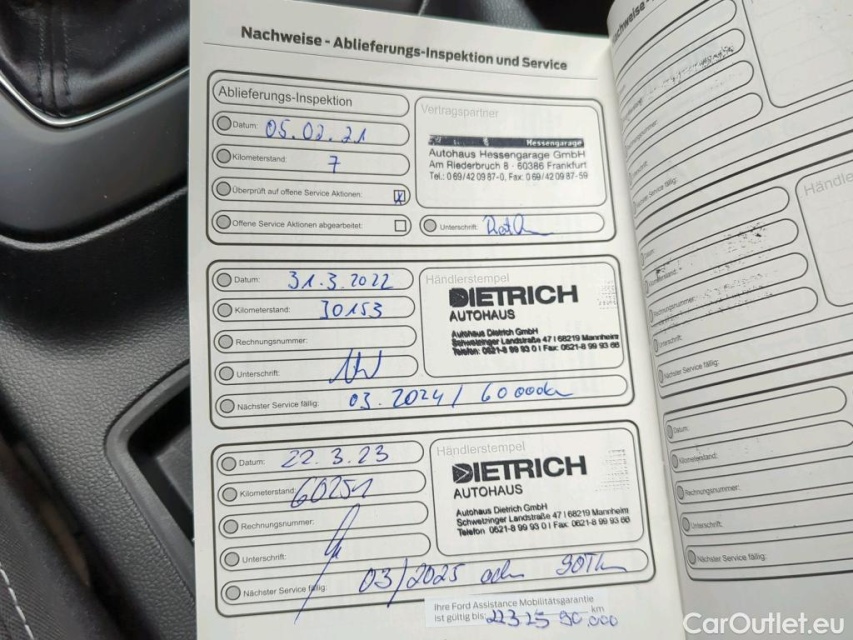 Nachweise - Ablieferungs-Inspektion und Service
Ablieferungs-Inspektion
Datum: 05.02.21
Kilometerstand: 7
Überprüft auf offene Service Aktionen: X
Offene Service Aktionen abgearbeitet:
Vertragspartner
Hessengarage
Autohaus Hessengarage GmbH
Am Riederbruch 8 · 60386 Frankfurt
Tel.: 0 69/42 09 87-0, Fax: 0 69/42 09 87-59
Unterschrift:
Datum: 31.3.2022
Kilometerstand: 30153
Rechnungsnummer:
Unterschrift:
Nächster Service fällig: 03.2024/ 60000
Händlerstempel
DIETRICH
AUTOHAUS
Autohaus Dietrich GmbH
Schwetzinger Landstraße 47 I 68219 Mannheim
Telefon: 0621-8 99 93 0 I Fax: 0621-8 99 93 66
Datum: 22.3.23
Kilometerstand: 60251
Rechnungsnummer:
Unterschrift:
Nächster Service fällig: 03/2025 90
Händlerstempel
DIETRICH
AUTOHAUS
Autohaus Dietrich GmbH
Schwetzinger Landstraße 47 I 68219 Mannheim
Telefon: 0621-8 99 93 0 I Fax: 0621-8 99 93 66
Ihre Ford Assistance Mobilitätsgarantie
ist gültig bis: 22 3 25 90.000 km
Nachweise -
Rechnungsnummer:
Unterschrift:
Nächster Service fällig:
Händle
Datum:
Kilometerstand:
Rechnungsnummer:
Unterschrift:
Nächster Service fällig:
Datum:
Kilometerstand:
Rechnungsnummer:
Unterschrift:
Nächster Service fällig:
CarOutlet.eu